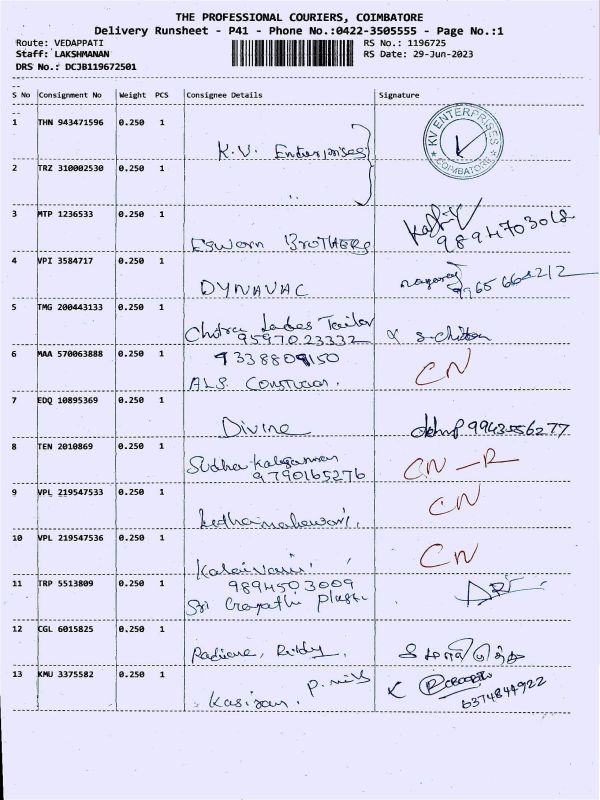 THE PROFESSIONAL COURIERS, COIMBATORE
Delivery Runsheet - P41 - Phone No.:0422-3505555 - Page No.:1
Route: VEDAPPATI RS No.: 1196725
Staff: LAKSHMANAN RS Date: 29-Jun-2023
DRS No.: DCJB119672501
S No Consignment No Weight PCS Consignee Details Signature
1 THN 943471596 0.250 1 KV ENTERPRISES COIMBATORE
K.V. Enterprises
2 TRZ 310002530 0.250 1
"
3 MTP 1236533 0.250 1
Esworn BROTHERS 9894703018
4 VPI 3584717 0.250 1
DYNAVAC nagaraj
9965664212
5 TMG 200443133 0.250 1
Ladies Tailor
9597023332
6 MAA 570063888 0.250 1 9338809150 CN
ALS
7 EDQ 10895369 0.250 1
Divine 9943556277
8 TEN 2010869 0.250 1 CN - R
Sudha
9790165276
9 VPL 219547533 0.250 1 CN
10 VPL 219547536 0.250 1 CN
Kalaivani
11 TRP 5513809 0.250 1 9894503009
Sri
12 CGL 6015825 0.250 1
13 KMU 3375582 0.250 1 P. mills
6374844922